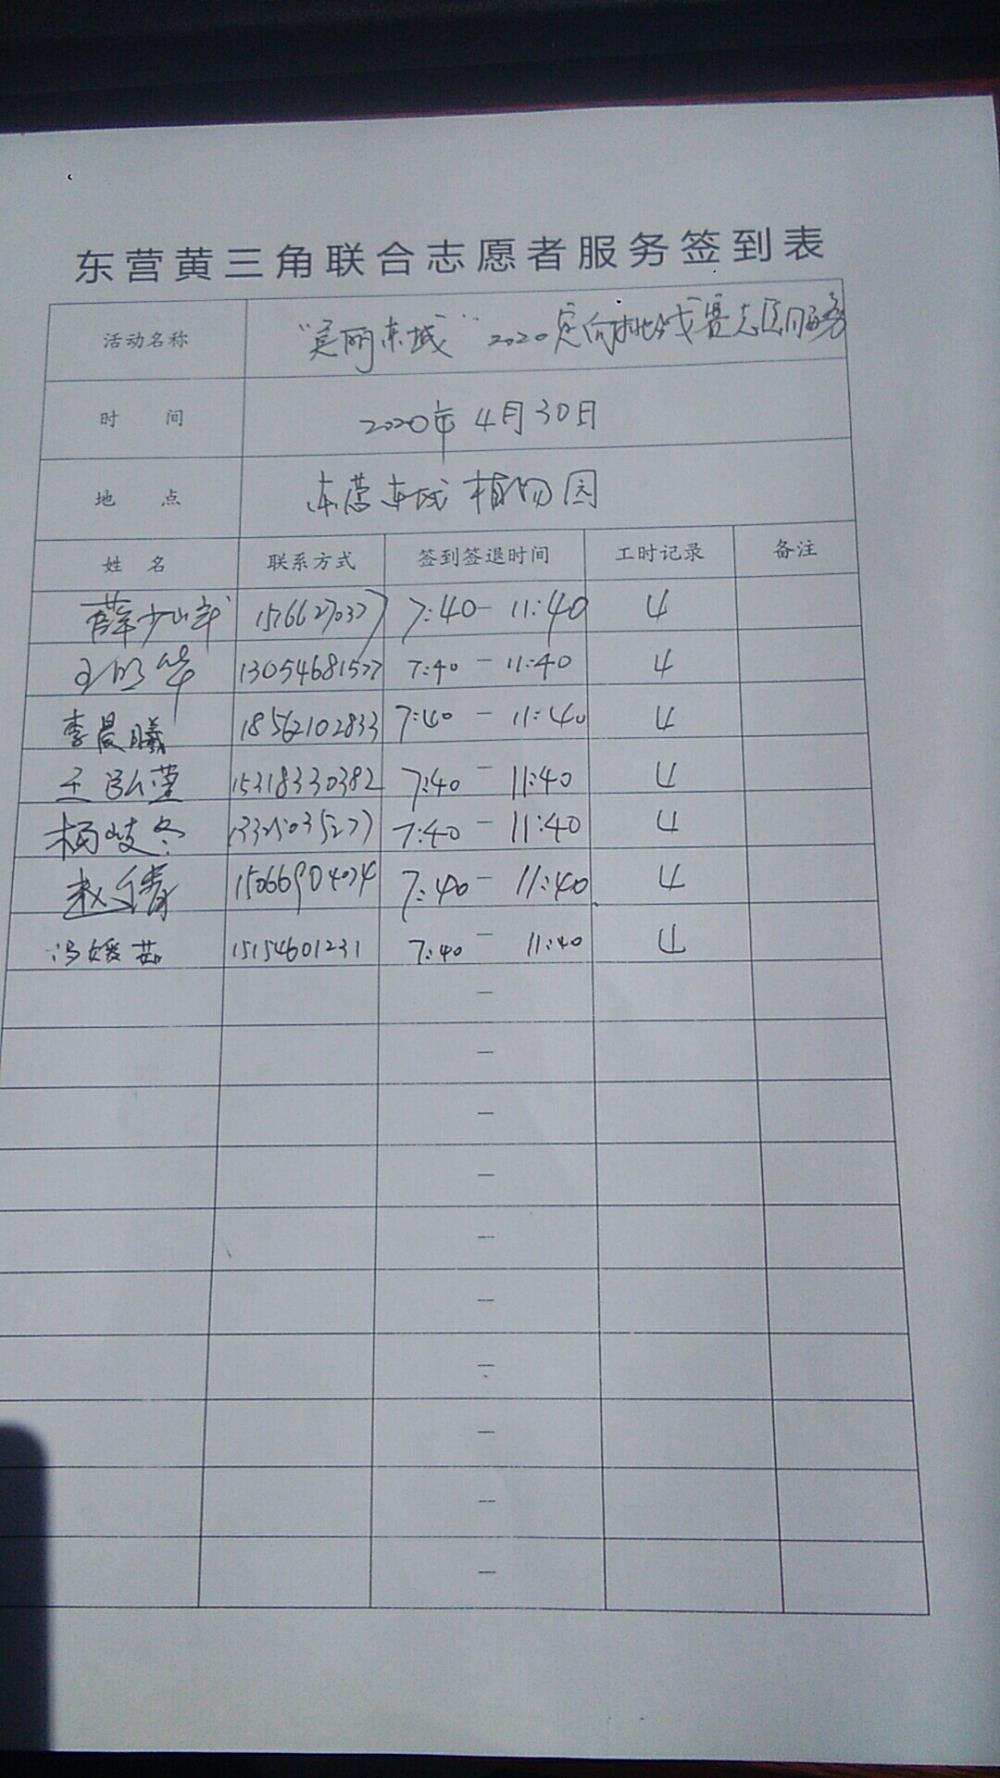 东营黄三角联合志愿者服务签到表
活动名称 "美丽东城" 2020定向挑战赛志愿服务
时 间 2020年4月30日
地 点 东营东城植物园
姓 名 联系方式 签到签退时间 工时记录 备注
7:40 - 11:40 4
13054681577 7:40 - 11:40 4
李晨曦 18562102833 7:40 - 11:40 4
王弘莹 15318330382 7:40 - 11:40 4
杨岐冬 7:40 - 11:40 4
赵 15066904074 7:40 - 11:40 4
冯媛茹 15154601231 7:40 - 11:40 4
—
—
—
—
—
—
—
—
—
—